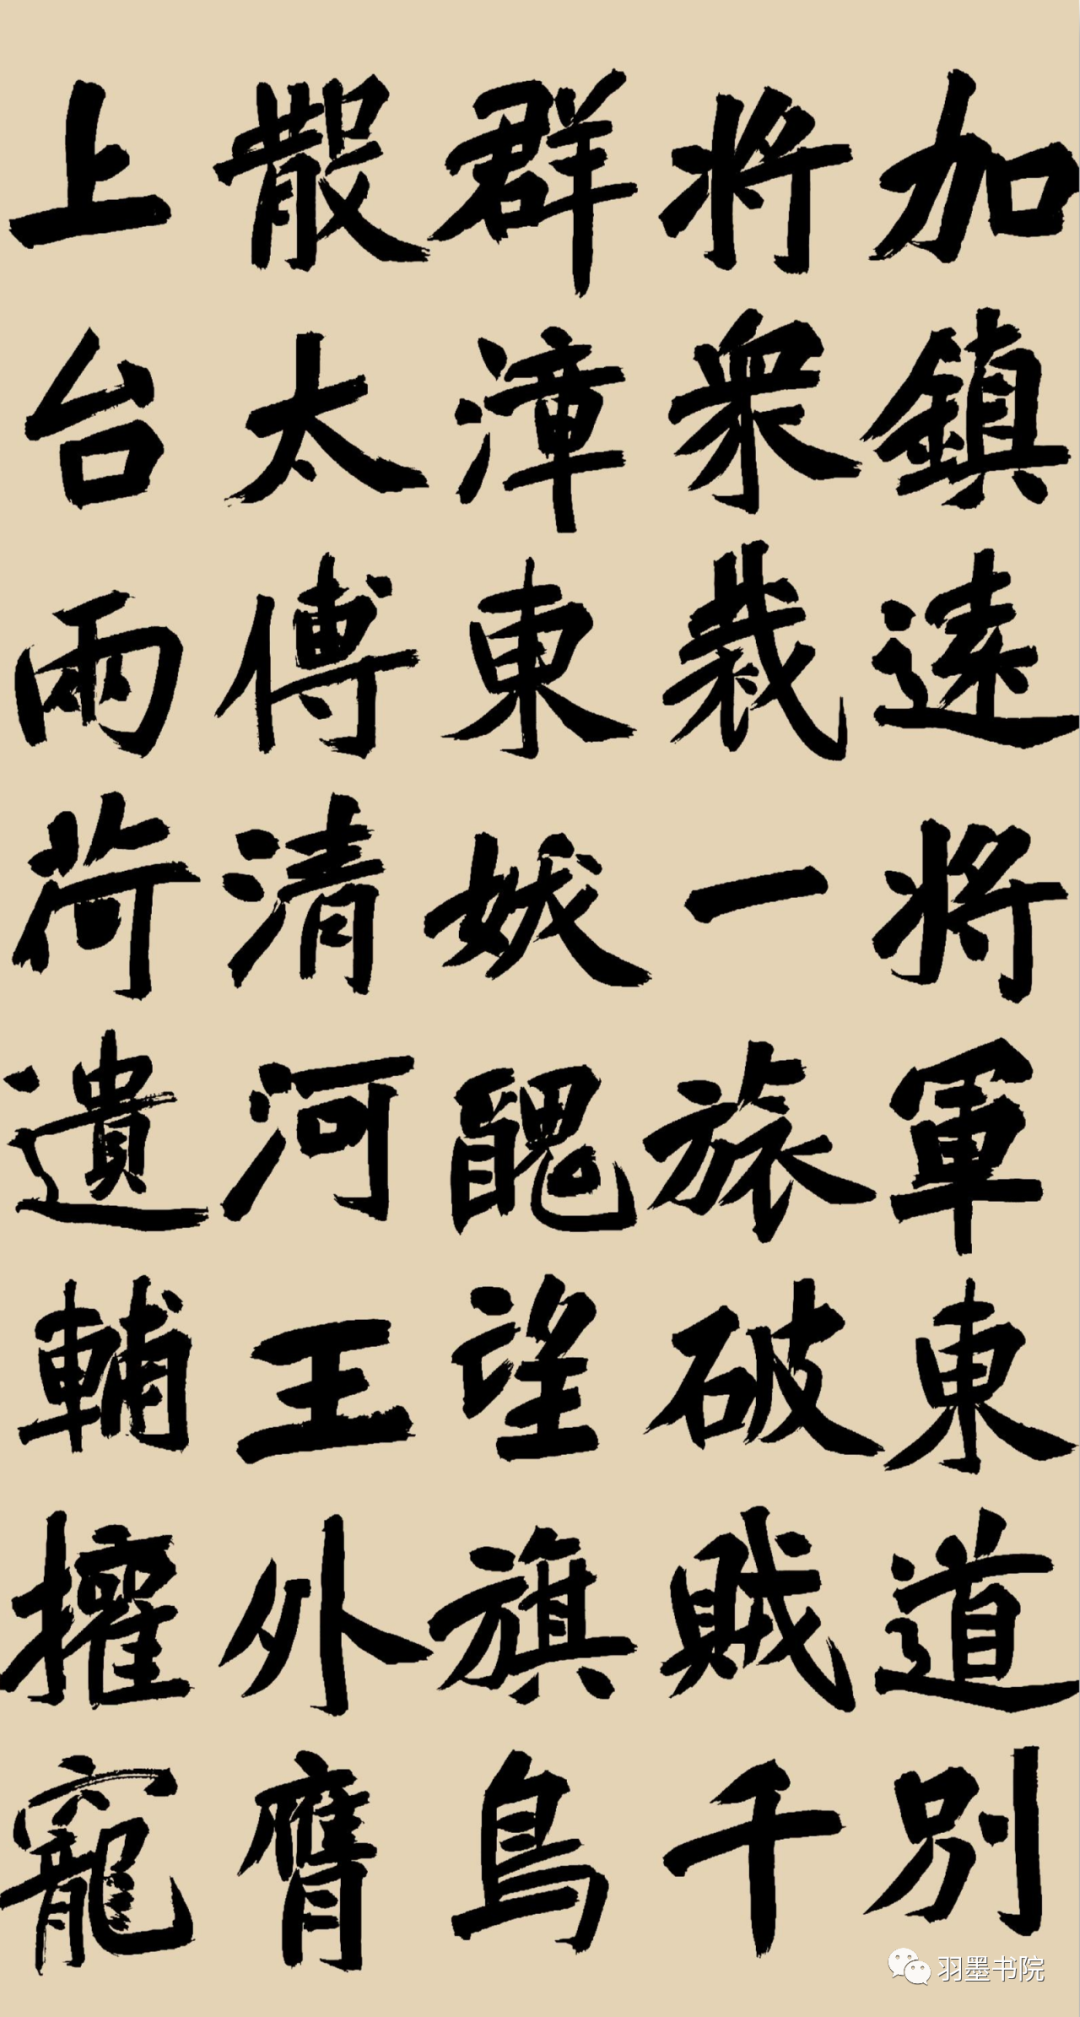 加鎮遠將軍東道別
將衆裁一旅破賊千
群漳東妖醜望旗鳥
散太傅清河王外膺
上台兩荷遺輔擢寵
羽墨书院